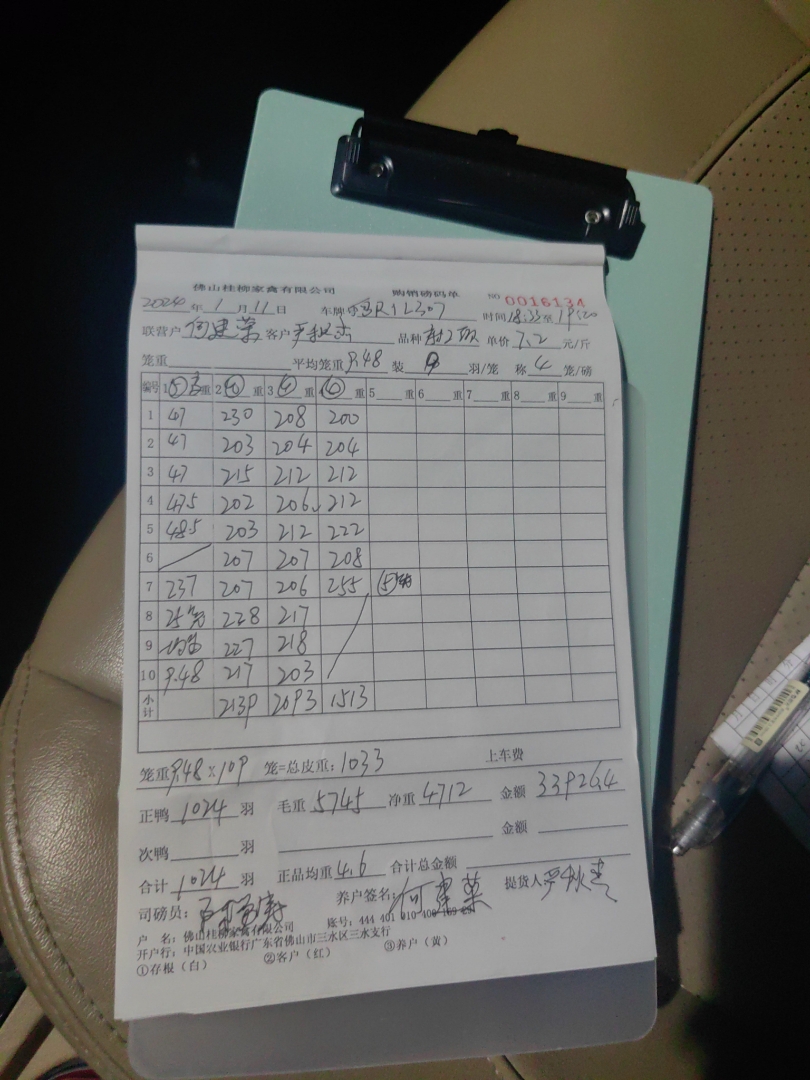 佛山桂柳家禽有限公司 购销磅码单 NO 0016134
2024年1月11日 车牌 R1L307 时间18:35至19:20
联营户 何建 客户 严秋 品种 单价7.2元/斤
笼重 平均笼重9.48 装 羽/笼 称4笼/磅
编号 1 ⑤ 重 2 ④ 重 3 ④ 重 ④ 重 5 重 6 重 7 重 8 重 9 重
1 47 230 208 200
2 47 203 204 204
3 47 215 212 212
4 475 202 206 212
5 485 203 212 222
6 207 207 208
7 237 207 206 255 ⑤
8 25 228 217
9 227 218
10 9.48 217 203
小计 2139 2093 1513
笼重9.48×109 笼=总皮重:1033 上车费
正鸭1024羽 毛重5745 净重4712 金额33926.4
次鸭 羽 金额
合计1024羽 正品均重4.6 合计总金额
司磅员: 养户签名:何 提货人严秋
户 名:佛山桂柳家禽有限公司 账号:444 401 010 400
开户行:中国农业银行广东省佛山市三水区三水支行
①存根(白) ②客户(红) ③养户(黄)